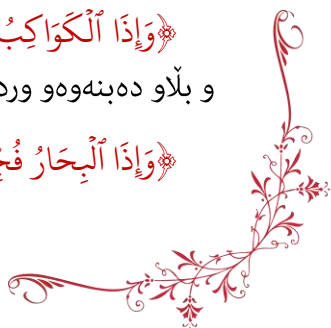 ﴿وَإِذَا ٱلْكَوَاكِبُ
و بڵاو دەبنەوەو
﴿وَإِذَا ٱلْبِحَارُ